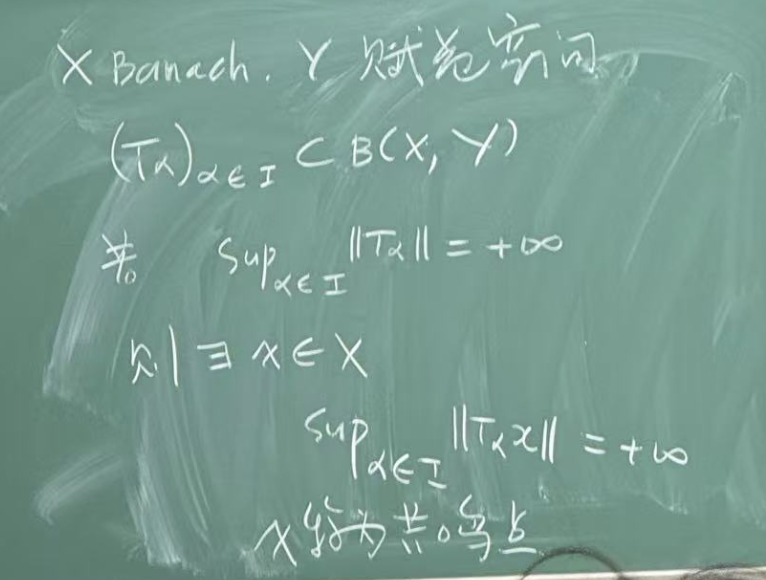 X Banach. Y 赋范空间
(Tα)α∈I ⊂ B(X, Y)
若 Sup α∈I ||Tα|| = +∞
则 ∃ x ∈ X
Sup α∈I ||Tαx|| = +∞
x 称为共鸣点